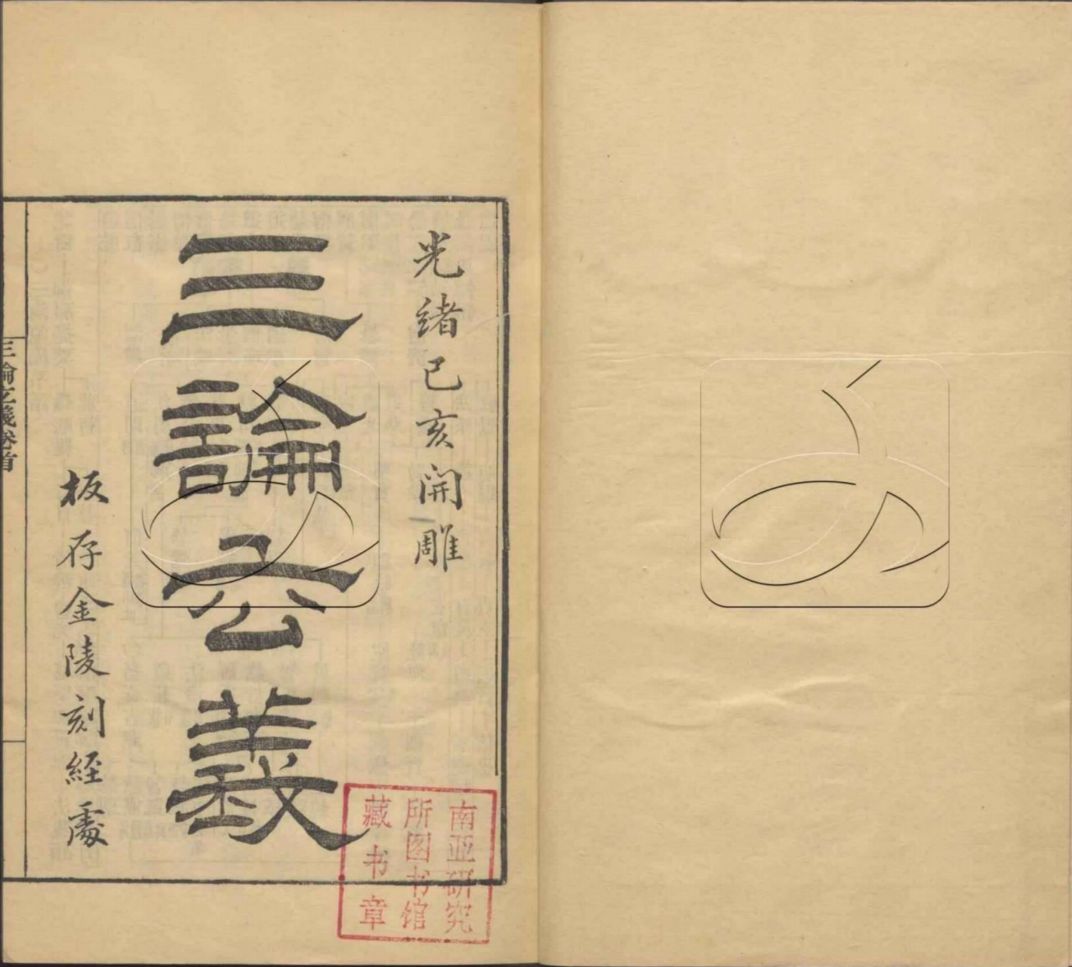 光緒己亥開雕
三論玄義
板存金陵刻經處
三論玄義卷首
南亚研究
所图书馆
藏书章